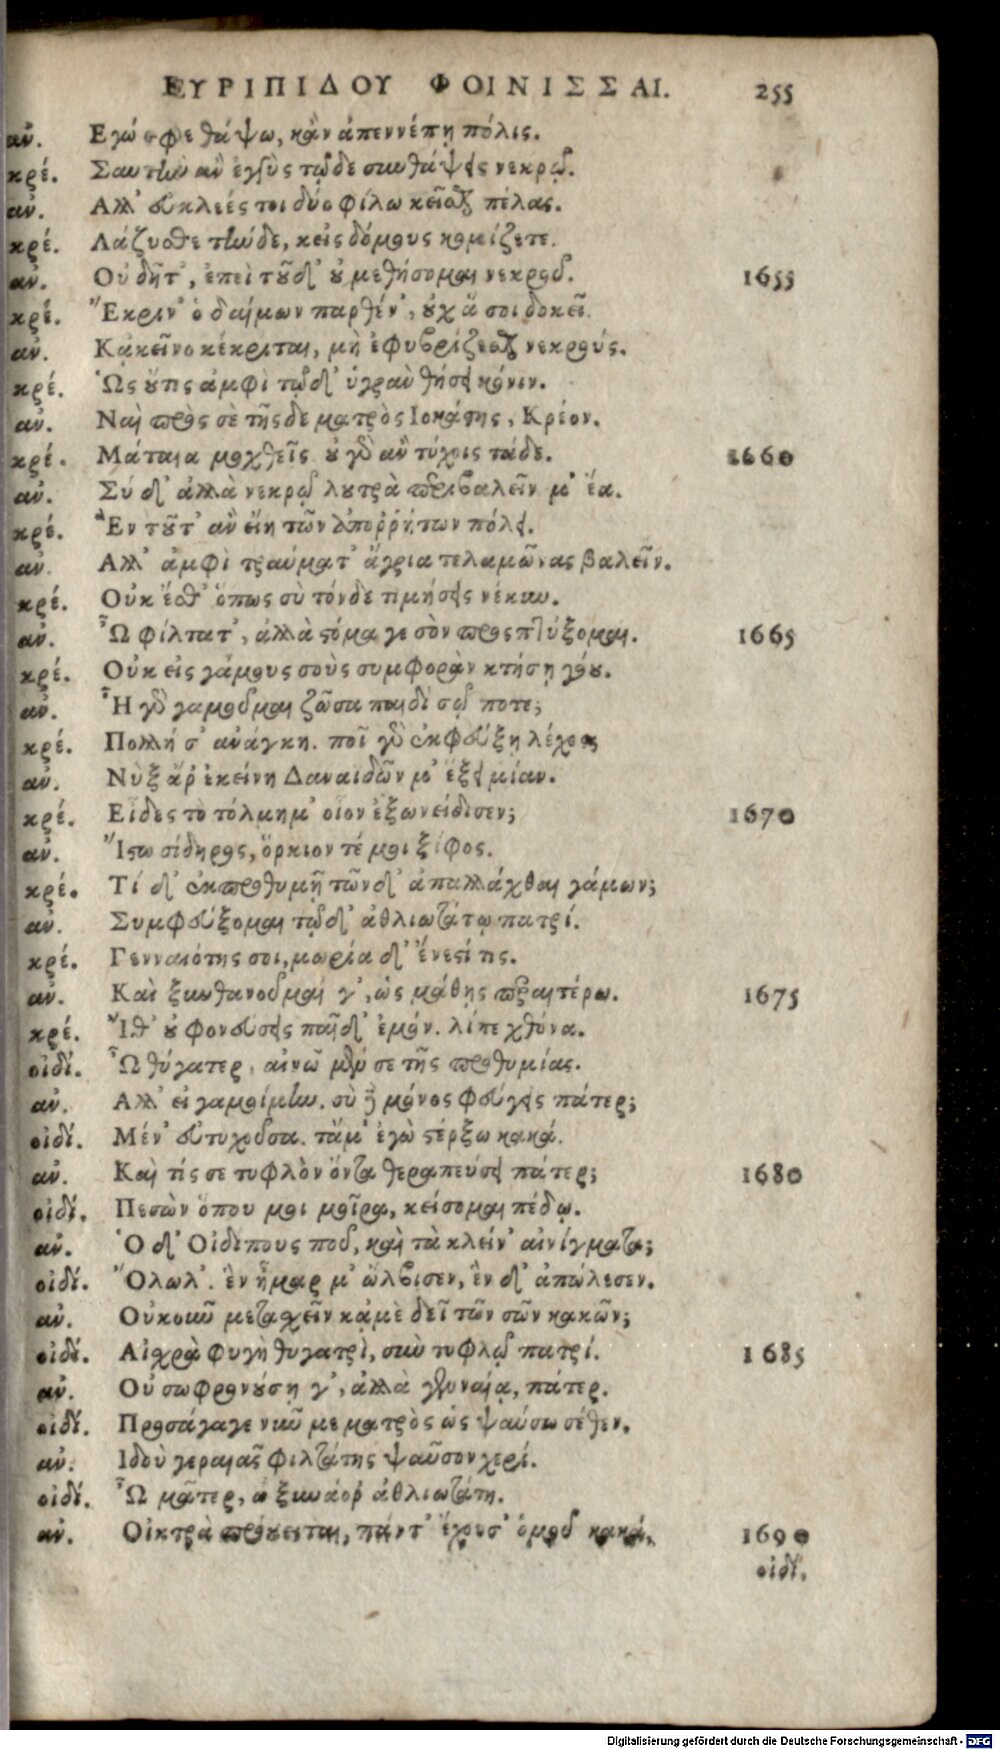 ΕΥΡΙΠΙΔΟΥ ΦΟΙΝΙΣΣΑΙ. 255
αν. Εγώ σφε θάψω, κἂν ἀπεννέπῃ πόλις.
κρέ. Σαυτὴν ἂν ἐγγὺς τῷδε συνθάψεις νεκρῷ.
αν. Αλλ' εὐκλεές τοι δύο φίλω κεῖσθαι πέλας.
κρέ. Λάζυσθε τήνδε, κεἰς δόμους κομίζετε.
αν. Οὐ δῆτ', ἐπεὶ τοῦδ' οὐ μεθήσομαι νεκροῦ. 1655
κρέ. Ἔκριν' ὁ δαίμων παρθέν', οὐχ ἅ σοι δοκεῖ.
αν. Κᾀκεῖνο κέκριται, μὴ ἐφυβρίζεσθαι νεκρούς.
κρέ. Ὡς οὔτις ἀμφὶ τῷδ' ὑγρὰν θήσει κόνιν.
αν. Ναὶ πρὸς σὲ τῆσδε ματρὸς Ιοκάστης, Κρέον.
κρέ. Μάταια μοχθεῖς οὐ γὰρ ἂν τύχοις τάδε. 1660
αν. Σύ δ' ἀλλὰ νεκρῷ λουτρὰ περιβαλεῖν μ' ἔα.
κρέ. Ἓν τοῦτ' ἂν εἴη τῶν ἀποῤῥήτων πόλει.
αν. Αλλ' ἀμφὶ τραύματ' ἄγρια τελαμῶνας βαλεῖν.
κρέ. Οὐκ ἔσθ' ὅπως σὺ τόνδε τιμήσεις νέκυν.
αν. Ὦ φίλτατ', ἀλλὰ στόμα γε σὸν προσπτύξομαι. 1665
κρέ. Οὐκ εἰς γάμους σοὺς συμφορὰν κτήσῃ γόου.
αν. Ἦ γὰρ γαμοῦμαι ζῶσα παιδὶ σῷ ποτε;
κρέ. Πολλή σ' ἀνάγκη. ποῖ γὰρ ἐκφεύξῃ λέχος
αν. Νὺξ ἄρ' ἐκείνη Δαναϊδῶν μ' ἕξει μίαν.
κρέ. Εἶδες τὸ τόλμημ' οἷον ἐξωνείδισεν; 1670
αν. Ἴστω σίδηρος, ὅρκιον τέ μοι ξίφος.
κρέ. Τί δ' ἐκπροθυμῇ τῶνδ' ἀπαλλάχθαι γάμων;
αν. Συμφεύξομαι τῷδ' ἀθλιωτάτῳ πατρί.
κρέ. Γενναιότης σοι, μωρία δ' ἔνεστί τις.
αν. Καὶ ξυνθανοῦμαι γ', ὡς μάθῃς περαιτέρω. 1675
κρέ. Ἴθ' οὐ φονεύσεις παῖδ' ἐμόν. λίπε χθόνα.
οἰδί. Ὦ θύγατερ, αἰνῶ μέν σε τῆς προθυμίας.
αν. Αλλ' εἰ γαμοίμην. σὺ δὲ μόνος φεύγεις πάτερ;
οἰδί. Μέν' εὐτυχοῦσα. τἄμ' ἐγὼ στέρξω κακά.
αν. Καὶ τίς σε τυφλὸν ὄντα θεραπεύσει πάτερ; 1680
οἰδί. Πεσὼν ὅπου μοι μοῖρα, κείσομαι πέδῳ.
αν. Ὁ δ' Οἰδίπους ποῦ, καὶ τὰ κλείν' αἰνίγματα;
οἰδί. Ὄλωλ'. ἓν ἦμαρ μ' ὤλβισεν, ἓν δ' ἀπώλεσεν.
αν. Οὐκοῦν μετασχεῖν κᾀμὲ δεῖ τῶν σῶν κακῶν;
οἰδί. Αἰσχρὰ φυγὴ θυγατρὶ, σὺν τυφλῷ πατρί. 1685
αν. Οὐ σωφρονούσῃ γ', ἀλλὰ γενναία, πάτερ.
οἰδί. Προσάγαγε νῦν με ματρὸς ὡς ψαύσω σέθεν.
αν. Ιδοὺ γεραιᾶς φιλτάτης ψαῦσον χερί.
οἰδί. Ὦ μᾶτερ, ὦ ξυνάορ' ἀθλιωτάτη.
αν. Οἰκτρὰ πρόκειται, πάντ' ἔχουσ' ὁμοῦ κακά. 1690
οἰδί.
Digitalisierung gefördert durch die Deutsche Forschungsgemeinschaft - DFG